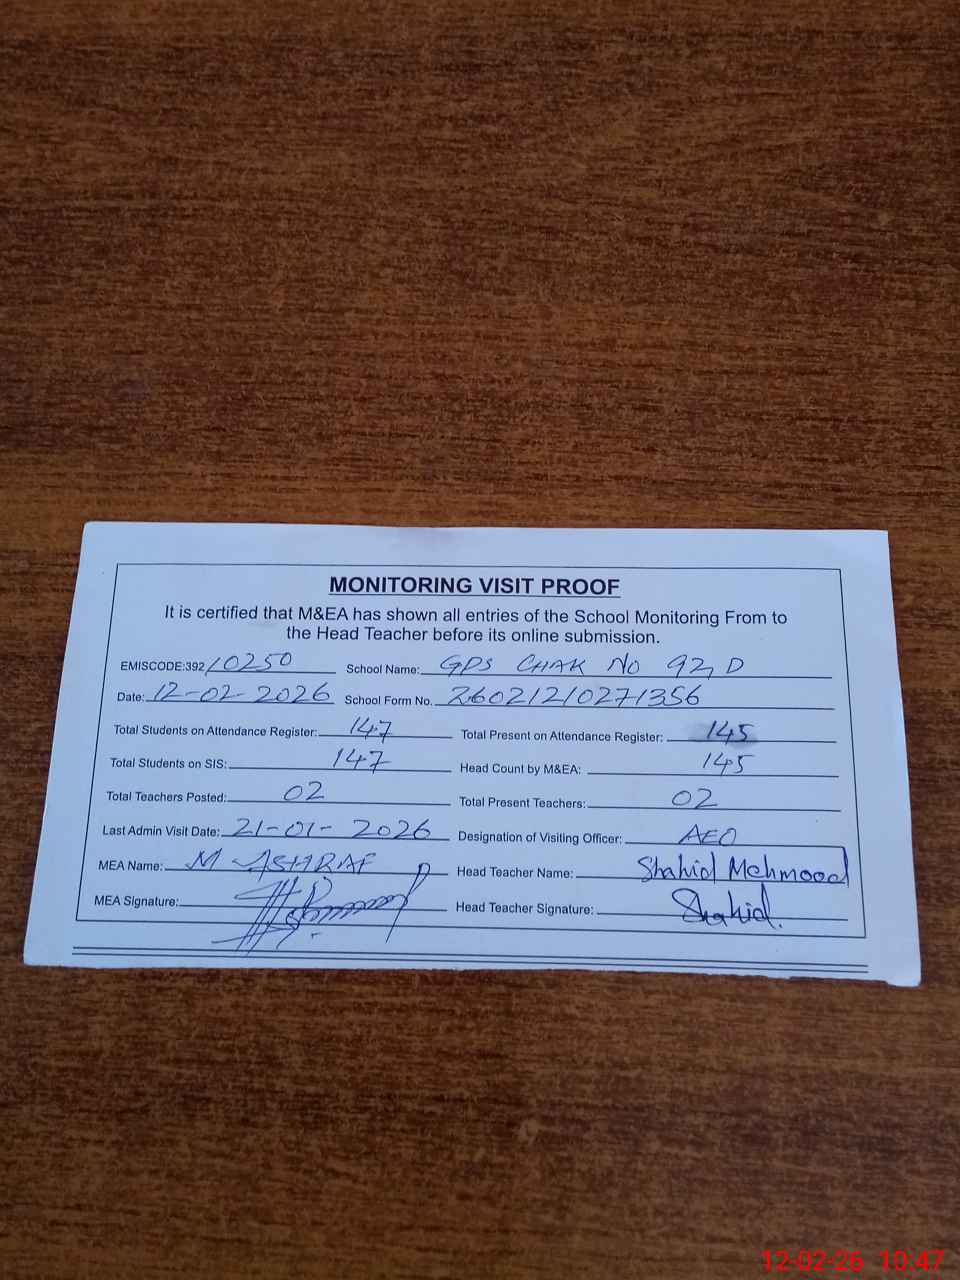 MONITORING VISIT PROOF
It is certified that M&EA has shown all entries of the School Monitoring From to
the Head Teacher before its online submission.
EMISCODE:392 10250 School Name: GPS CHAK NO 92/D
Date: 12-02-2026 School Form No. 26021210271356
Total Students on Attendance Register: 147 Total Present on Attendance Register: 145
Total Students on SIS: 147 Head Count by M&EA: 145
Total Teachers Posted: 02 Total Present Teachers: 02
Last Admin Visit Date: 21-01-2026 Designation of Visiting Officer: AEO
MEA Name: M ASHRAF Head Teacher Name: Shahid Mehmood
MEA Signature: Head Teacher Signature: Shahid.
12-02-26 10:47